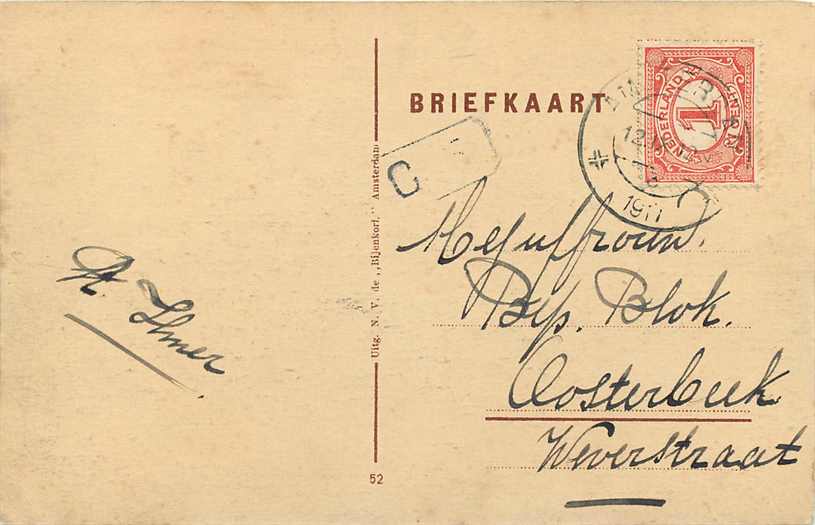 BRIEFKAART
NEDERLAND
1
1911
C
Mejuffrouw.
Bep. Blok.
Oosterbeek
Weverstraat
Uitg. N. V. de „Bijenkorf." Amsterdam
52